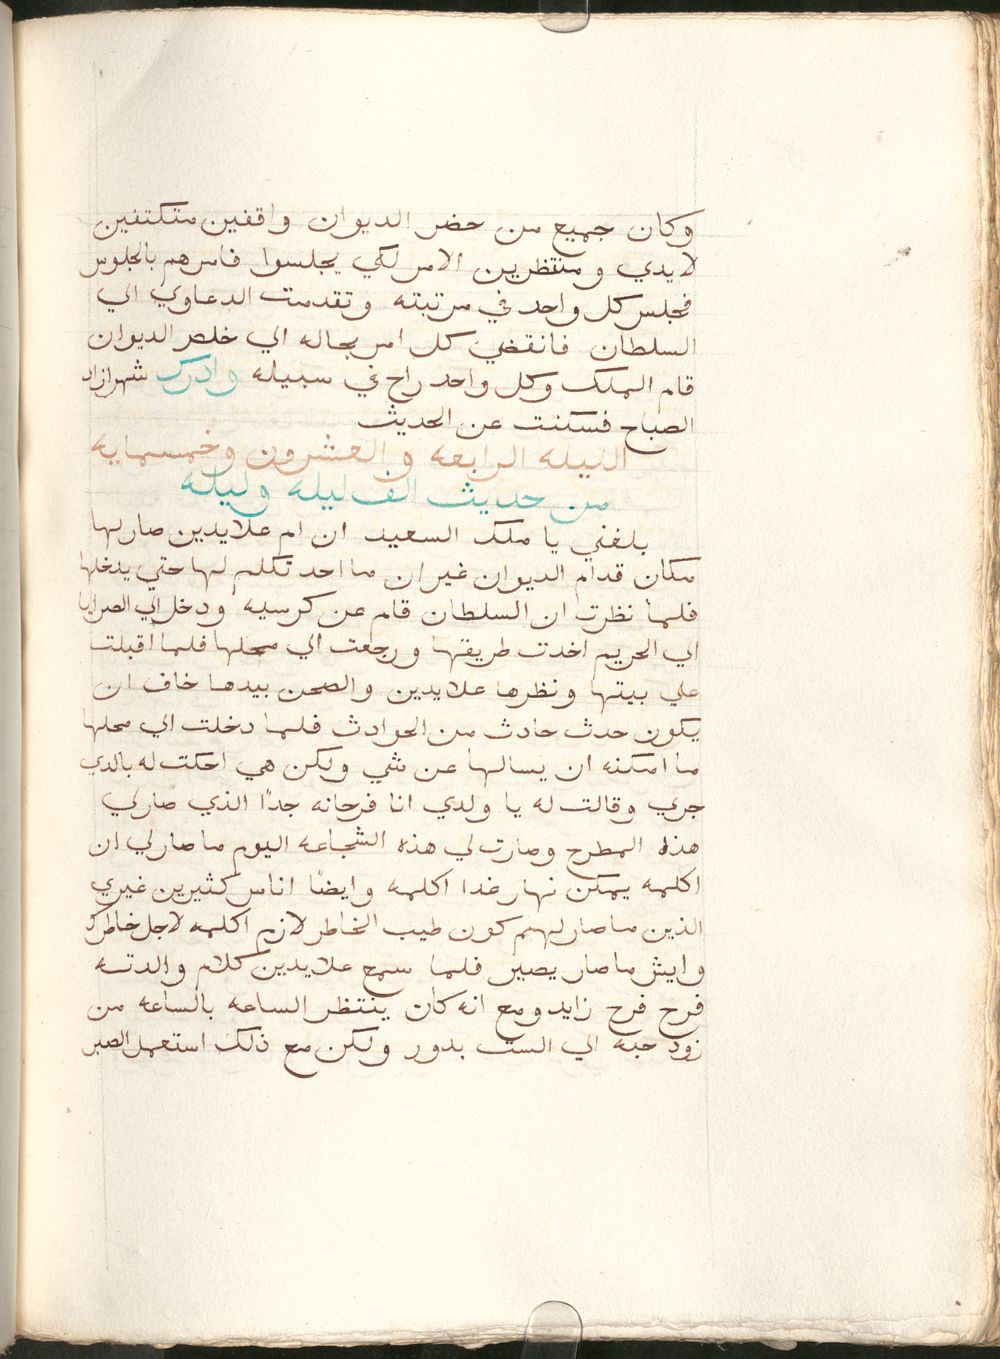 وكان جميع من حضر الديوان واقفين متكتفين
لايدي ومنتظرين الامر لكي يجلسوا فامرهم بالجلوس
فجلس كل واحد في مرتبته وتقدمت الدعاوي الي
السلطان فانقضي كل امر بحاله الي خلص الديوان
قام الملك وكل واحد راح في سبيله وادرك شهرازاد
الصباح فسكتت عن الحديث
الليله الرابعه والعشرون وخمسمايه
من حديث الف ليله وليله
بلغني يا ملك السعيد ان ام علايدين صار لها
مكان قدام الديوان غير ان ما احد تكلم لها حتي يدخلها
فلما نظرت ان السلطان قام عن كرسيه ودخل الي الصرايا
الي الحريم اخدت طريقها ورجعت الي محلها فلما اقبلت
علي بيتها ونظرها علايدين والصحن بيدها خاف ان
يكون حدث حادث من الحوادث فلما دخلت الي محلها
ما امكنه ان يسالها عن شي ولكن هي احكت له بالدي
جري وقالت له يا ولدي انا فرحانه جدًا الذي صار لي
هذه المطرح وصارت لي هذه الشجاعه اليوم ما صار لي ان
اكلمه يمكن نهار غدا اكلمه وايضًا اناس كثيرين غيري
الذين ما صار لهم كون طيب الخاطر لازم اكلمه لاجل خاطرك
وايش ما صار يصير فلما سمع علايدين كلام والدته
فرح فرح زايد ومع انه كان ينتظر الساعه بالساعه من
زود حبه الي الست بدور ولكن مع ذلك استعمل الصبر